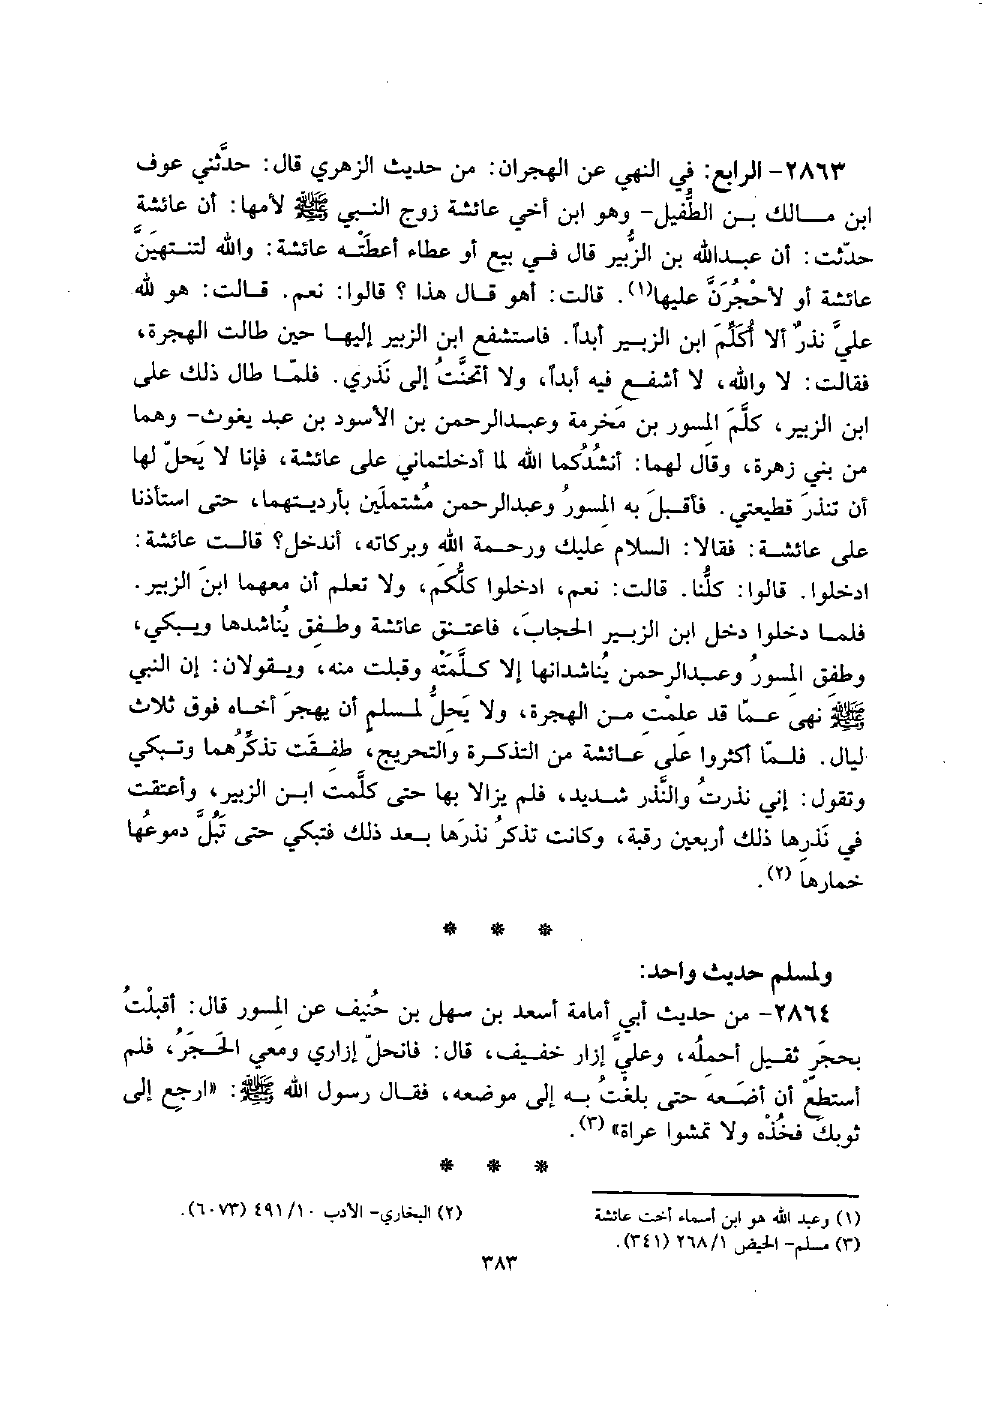 ٢٨٦٣- الرابع: في النهي عن الهجران: من حديث الزهري قال: حدَّثني عوف
ابن مـالك بـن الطُّفيل- وهو ابن أخي عائشة زوج النبي ﷺ لأمها: أن عائشة
حدّثت: أن عبدالله بن الزُّبير قال فـي بيع أو عطاء أعطَتْـه عائشة: والله لتنتهيَنَّ
عائشة أو لأحْجُرَنَّ عليها(١). قالت: أهو قـال هذا ؟ قالوا: نعم. قـالت: هو لله
عليَّ نذرٌ ألا أُكَلِّمَ ابن الزبـير أبداً. فاستشفع ابن الزبير إليهـا حين طالت الهجرة،
فقالت: لا والله، لا أشفـع فيه أبداً، ولا أتحنَّثُ إلى نَذري. فلمّـا طال ذلك على
ابن الزبير، كلَّمَ المِسور بن مَخرمة وعبـدالرحمن بن الأسود بن عبد يغوث- وهما
من بني زهرة، وقال لهما: أنشُدُكما الله لما أدخلتماني على عائشة، فإنا لا يَحلّ لها
أن تنذرَ قطيعتي. فأقبـلَ به المِسورُ وعبدالرحمن مُشتملَين بأرديتهما، حتى استأذنا
على عائشـة: فقالا: السلام عليك ورحمـة الله وبركاته، أندخل؟ قالـت عائشة:
ادخلوا. قالوا: كلُّنا. قالت: نعم، ادخلوا كلُّكم، ولا تعلم أن معهما ابنَ الزبير.
فلمـا دخلوا دخل ابن الزبـير الحجابَ، فاعتنـق عائشة وطفـق يُناشدها ويـبكي،
وطفِق المِسورُ وعبـدالرحمن يُناشدانها إلا كـلَّمَتْه وقبلت منه، ويـقولان: إن النبي
ﷺ نهى عـمّا قد علِمْتِ مـن الهجرة، ولا يَحِلُّ لمسلمٍ أن يهجرَ أخـاه فوق ثلاث
ليال. فلـمّا أكثروا على عـائشة من التذكـرة والتحريج، طفـقَت تذكِّرُهما وتـبكي
وتقول: إني نذرتُ والنَّذر شـديد، فلم يزالا بها حتى كلَّمت ابـن الزبير، وأعتقت
في نَذرها ذلك أربعين رقبة، وكانت تذكرُ نذرَها بـعد ذلك فتبكي حتى تَبُلَّ دموعُها
خمارها (٢).
* * *
ولمسلم حديث واحد:
٢٨٦٤- من حديث أبي أمامة أسعد بن سهل بن حُنيف عن المِسور قال: أقبلْتُ
بحجرٍ ثقيـل أحملُه، وعليَّ إزار خفيـف، قال: فانحلّ إزاري ومعي الحَـجَرُ، فلم
أستطعْ أن أضَـعه حتى بلغْتُ بـه إلى موضعه، فقـال رسول الله ﷺ: «ارجع إلى
ثوبكَ فخُذْه ولا تمشوا عراة» (٣).
* * *
(١) وعبد الله هو ابن أسماء أخت عائشة
(٢) البخاري- الأدب ١٠/ ٤٩١ (٦٠٧٣).
(٣) مسلم- الحيض ١/ ٢٦٨ (٣٤١).
٣٨٣